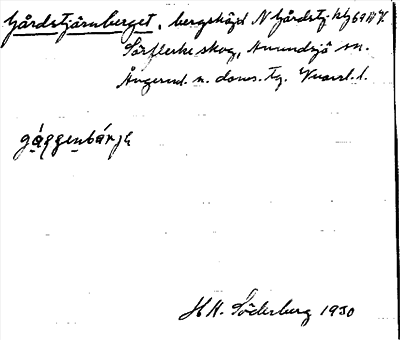 Gårdstjärnberget, bergshöjd N Gårdstj. kbl 69 IV
Sörflerke skog, Anundsjö sn.
Ångerml. n. doms. tg.
gággenbárje
H H. Söderberg 1930